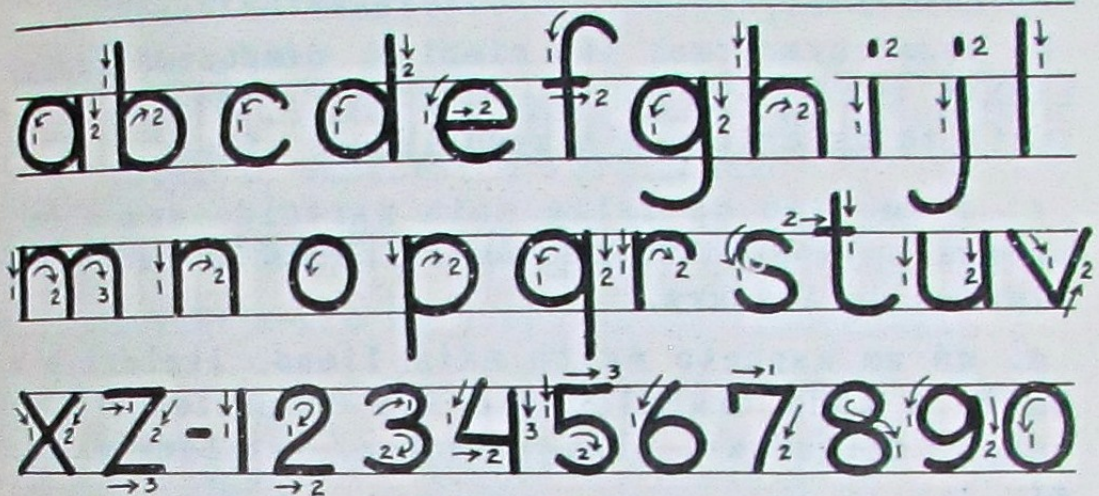 a b c d e f g h i j l
m n o p q r s t u v
x z - 1 2 3 4 5 6 7 8 9 0